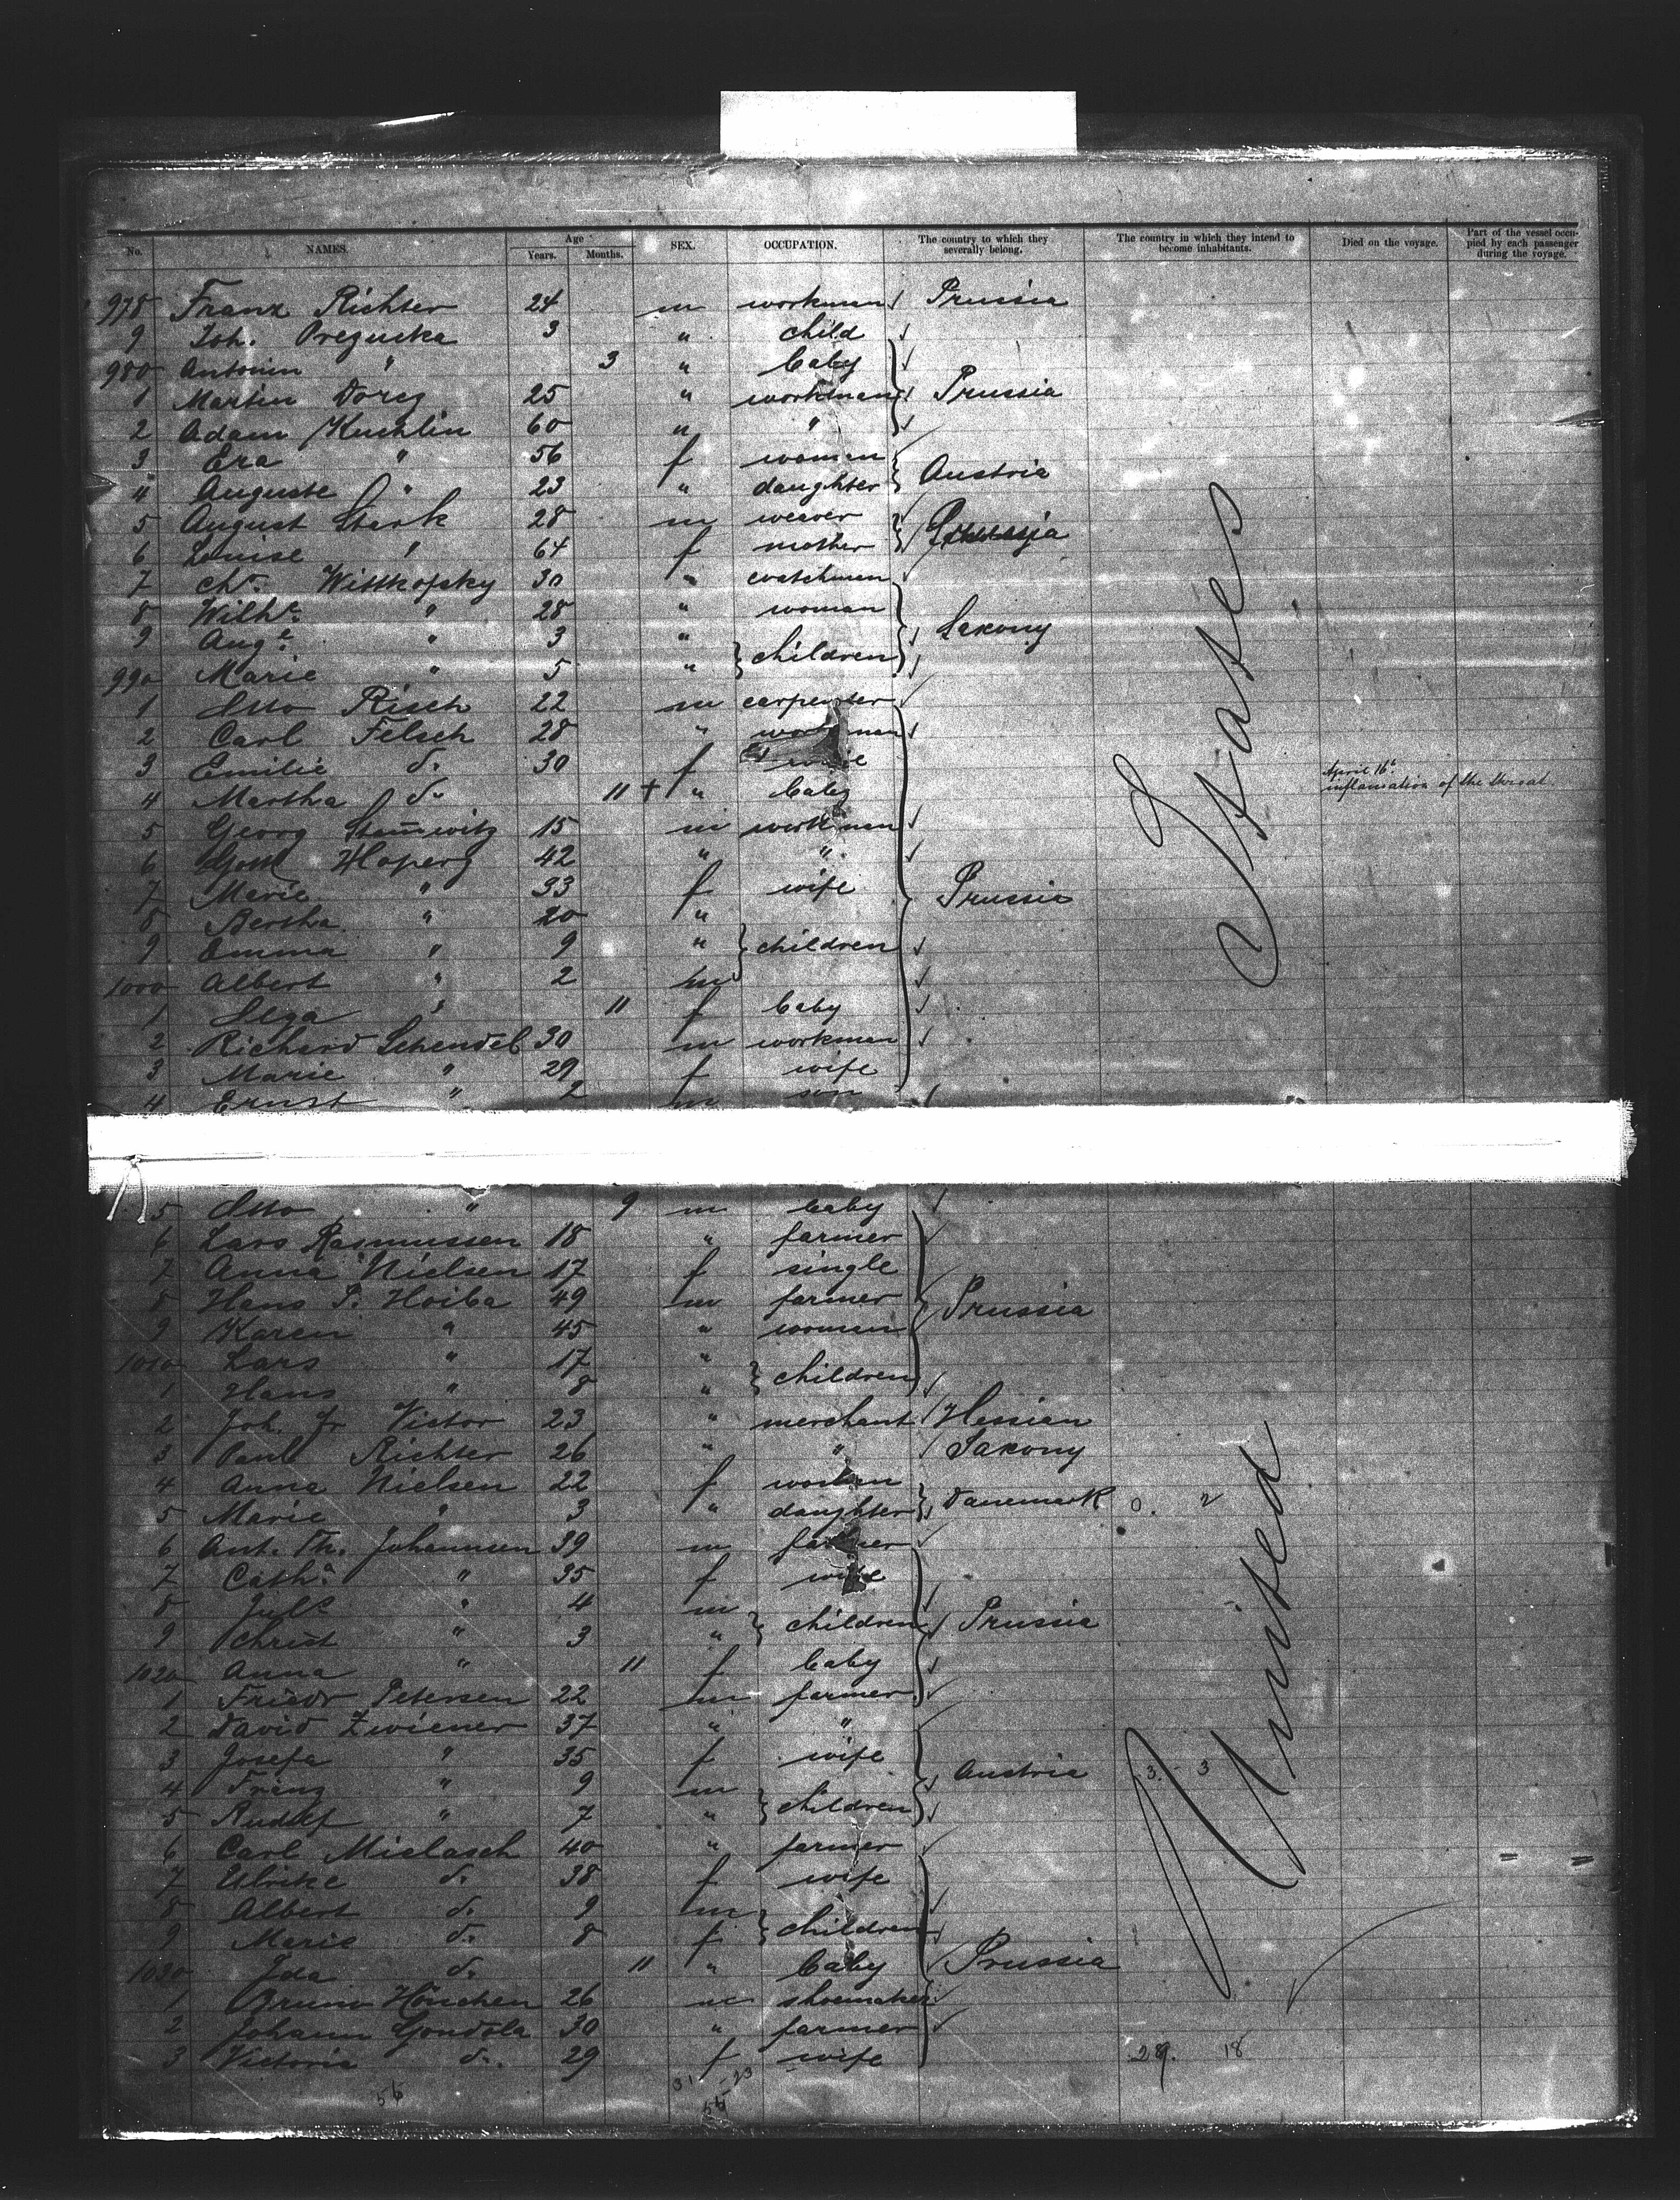 No. NAMES. Age Years. Months. SEX. OCCUPATION. The country to which they severally belong. The country in which they intend to become inhabitants. Died on the voyage. Part of the vessel occupied by each passenger during the voyage.
978 Franz Richter 24 m workman Prussia
9 Joh. Preguska 3 " child
980 Antonin " 3 " baby
1 Martin Dorey 25 " workman Prussia
2 Adam Kuchlin 60 " "
3 Eva " 56 f woman
4 Auguste " 23 " daughter Austria
5 August Stark 28 m weaver
6 Louise " 64 f mother
7 Chr. Wittkofsky 30 " watchman
8 Wilhe. " 28 " woman
9 Auge. " 3 " children Saxony
990 Marie " 5 "
1 Otto Risch 22 m carpenter
2 Carl Felsch 28 " workman
3 Emilie do. 30 f wife
4 Martha do. 11 + " baby April 16t. inflamation of the throat
5 Georg Stam̅witz 15 m workman
6 Gottl Hoperg 42 " "
7 Marie " 33 f wife Prussia
8 Bertha " 20 "
9 Emma " 9 " children
1000 Albert " 2 m
1 Olga " 11 f baby
2 Richard Schendel 30 m workman
3 Marie " 29 f wife
4 Ernst " 2 m son
5 Otto " 9 m baby
6 Lars Rasmussen 18 " farmer
7 Anna Nielsen 17 f single
8 Hans P. Hoiba 49 m farmer Prussia
9 Karen " 45 " women
1010 Lars " 17 " children
1 Hans " 8 "
2 Joh. Fr Victor 23 " merchant Hessian
3 Paul Richter 26 " " Saxony
4 Anna Nielsen 22 f woman
5 Marie " 3 " daughter Danemark 0. 2
6 Ant. Th. Johannsen 39 m farmer
7 Catha. " 35 f wife
8 Jule " 4 m children Prussia
9 Christ " 3 "
1020 Anna " 11 f baby
1 Friedr Petersen 22 m farmer
2 David Zwiener 37 " "
3 Josefa " 35 f wife Austria 3. 3
4 Franz " 9 m children
5 Rudolf " 7 "
6 Carl Mielasch 40 " farmer
7 Ulrike do. 38 f wife
8 Albert do. 9 m children
9 Marie do. 8 f
1030 Ida do. 11 " baby Prussia
1 Bruno Hönchen 26 m shoemaker
2 Johann Gondola 30 " farmer
3 Victoria do. 29 f wife 29. 18
56 31 - 23
United States